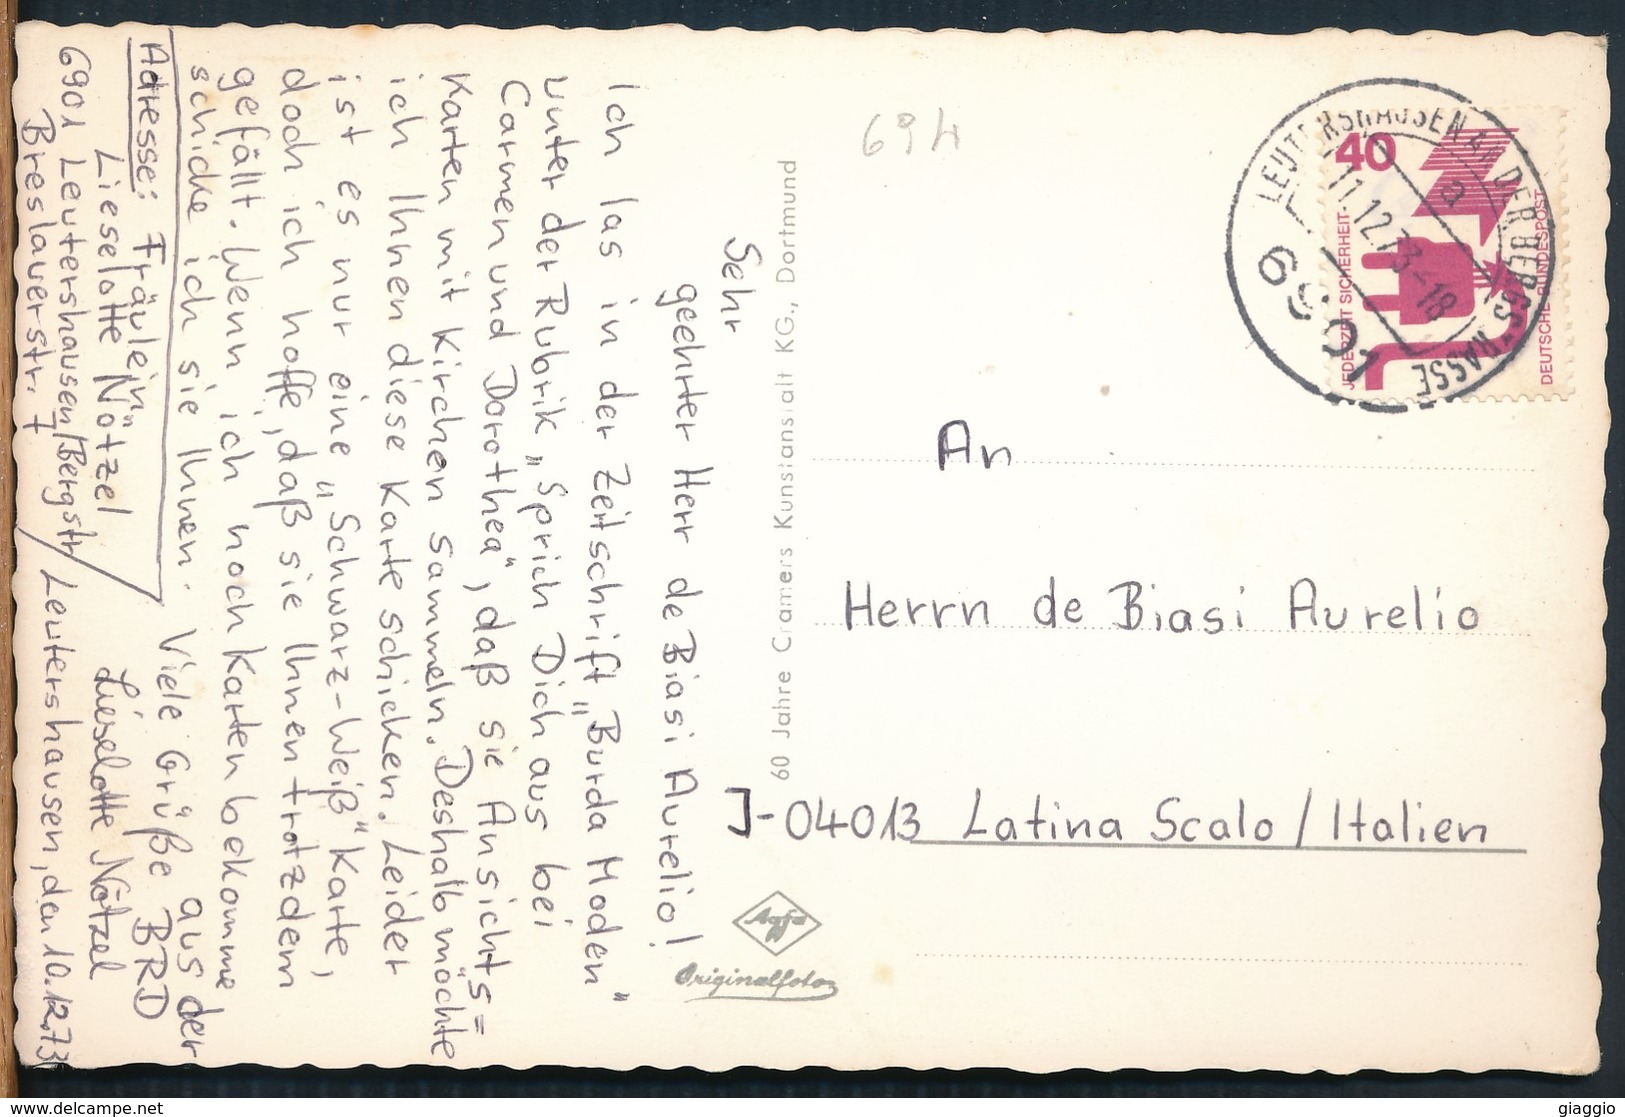 Sehr
geehrter Herr de Biasi Aurelio!
Ich las in der Zeitschrift „Burda Moden"
unter der Rubrik „Sprich Dich aus bei
Carmen und Dorothea", daß sie Ansichts=
Karten mit Kirchen sammeln. Deshalb möchte
ich Ihnen diese Karte schicken. Leider
ist es nur eine „Schwarz-Weiß" Karte,
doch ich hoffe, daß sie Ihnen trotzdem
gefällt. Wenn ich noch Karten bekomme
schicke ich sie Ihnen.
Viele Grüße aus der
BRD
Lieselotte Nötzel
Adresse: Fräulein
Lieselotte Nötzel
6901 Leutershausen/Bergstr.
Breslauerstr. 7
Leutershausen, den 10.12.73
60 Jahre Cramers Kunstanstalt KG., Dortmund
694
LEUTERSHAUSEN AN DER BERGSTRASSE
a
11.12.73-18
6901
40
JEDERZEIT SICHERHEIT
DEUTSCHE BUNDESPOST
An
Herrn de Biasi Aurelio
I-04013 Latina Scalo / Italien
Agfa
Originalfoto
delcampe.net
giaggio